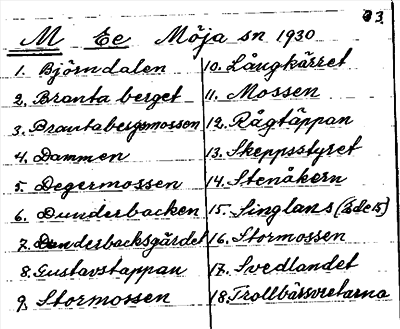 83
M Ee Möja sn 1930
1. Björndalen
2. Branta berget
3. Brantabergsmossen
4. Dammen
5. Degermossen
6. Dunderbacken
7. Dunderbacksgärdet
8. Gustavstäppan
9. Stormossen
10. Långkärret
11. Mossen
12. Rågtäppan
13. Skeppsstyret
14. Stenåkern
15. Singlans
16. Stormossen
17. Svedlandet
18. Trollbärsvretarna